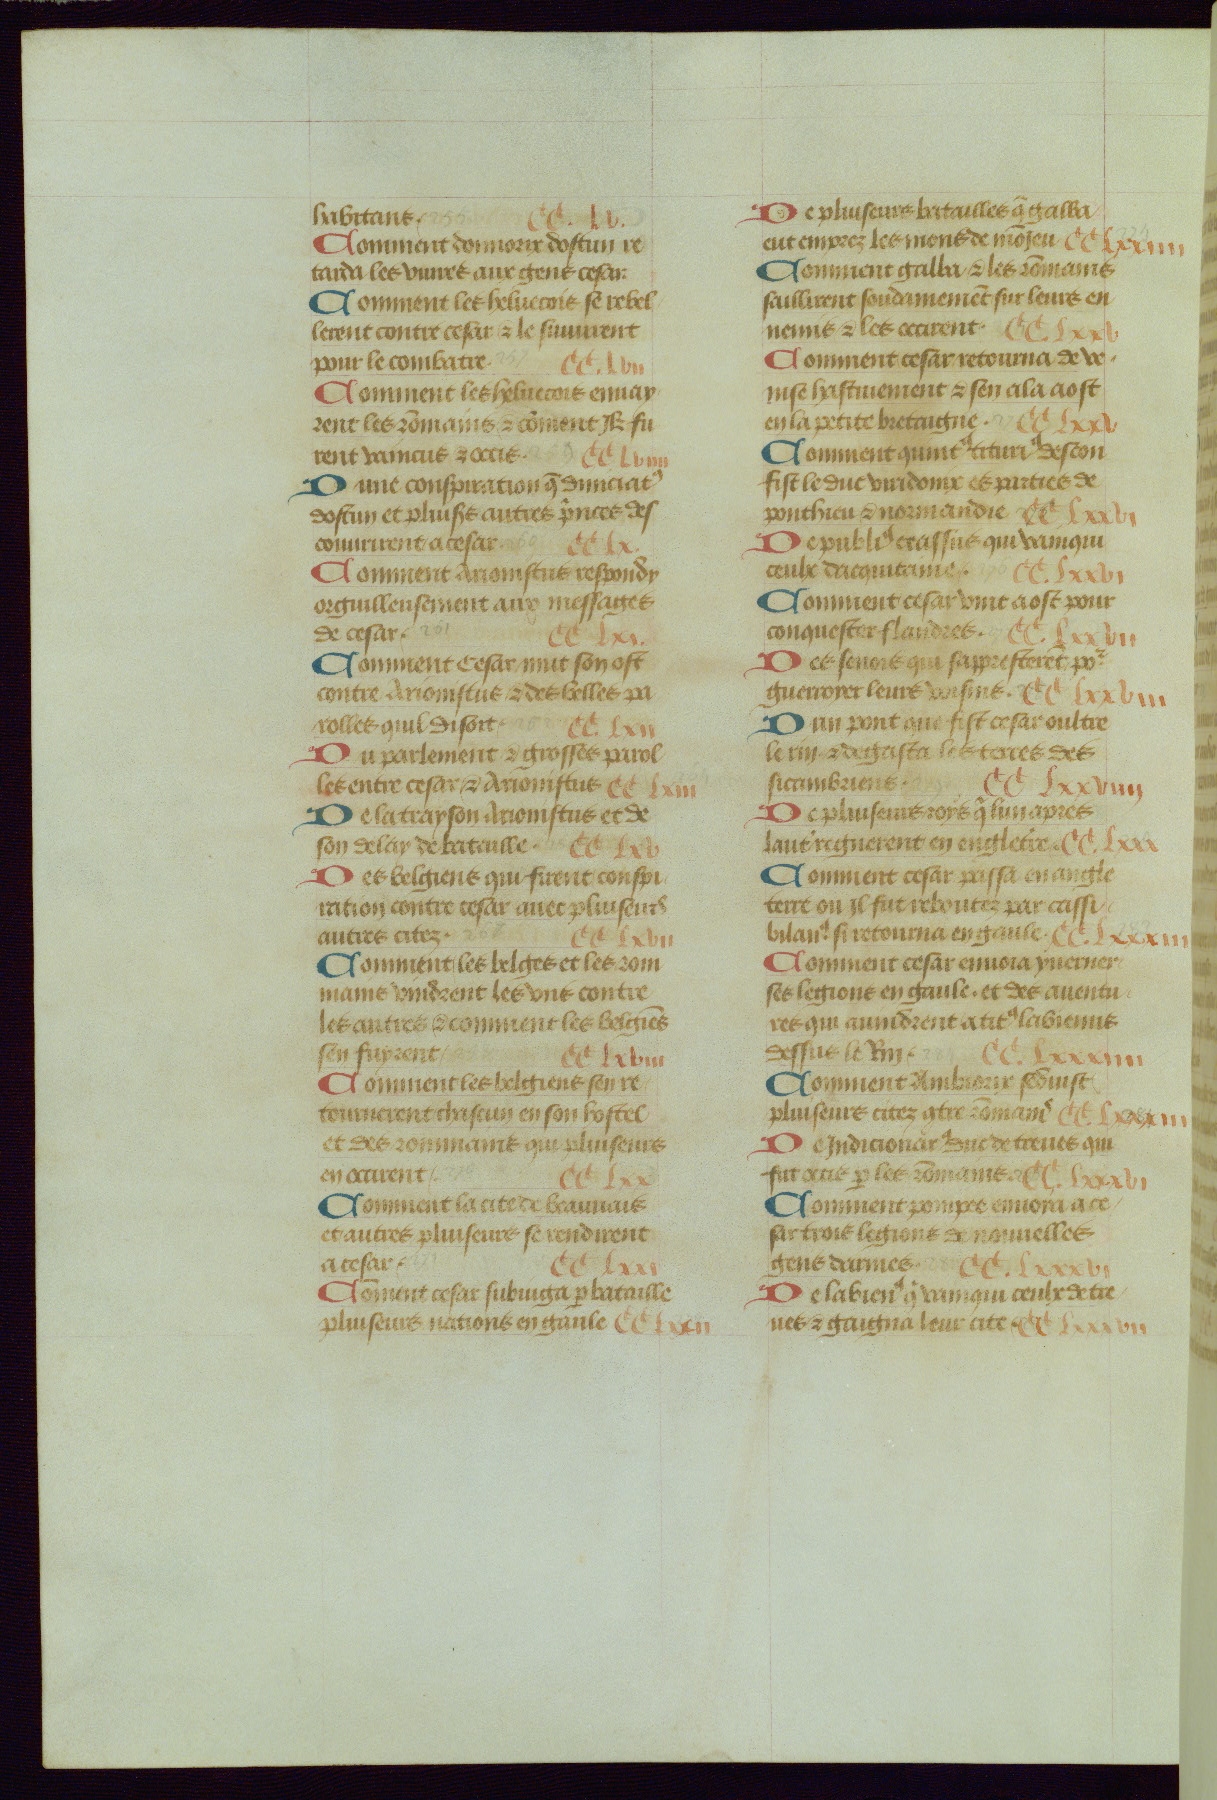 habitans. CC. Lv.
Comment donnorix dostun re
tarda les viures aux gens cesar.
Comment les heluecois se rebel
lerent contre cesar & le suiuirent
pour le combatre. CC. Lvii
Comment les heluecois enuay
rent les rōmains & cōment Jlz fu
rent vaincus & occis. CC Lviii
D une conspiration q̄ diuiciatꝰ
dostun et pluiss autres p̄nces des
couurirent a cesar. CC Lx.
Comment Arionistus respondy
orguilleusement aux messages
de cesar. CC Lxi.
Comment Cesar mut son ost
contre Arionistus & des belles pa
rolles quil disoit. CC. Lxii
D u parlement & grosses parol
les entre cesar & Arionistus CC Lxiii
D e la trayson Arionistus et de
son delay de bataille. CC Lxv
D es belgiens qui firent conspi
ration contre cesar auec pluiseurs
autres citez. CC Lxvii
Comment les belges et les rom
mains vindrent les vns contre
les autres & comment les belgiēs
sen fuyrent. CC Lxviii
Comment les belgiens sen re
tournerent chascun en son hostel
et des rommains qui pluiseurs
en occirent. CC Lxx
Comment la cite de beauuais
et autres pluiseurs se rendirent
a cesar. CC Lxxi
Cōment cesar subiuga ꝑ bataille
pluiseurs nations en gaule CC Lxxii
D e pluiseurs batailles q̄ galba
eut emprez les mons de mōjeu CC Lxxiiii
Comment galba & les rōmains
saillirent soudainemēt sur leurs en
nemis & les occirent. CC. Lxxv
Comment cesar retourna de ve
nise hastiuement & sen ala a ost
en la petite bretaigne. CC Lxxv
Comment quintꝰ tituriꝰ descon
fist le duc viridomix es parties de
ponthieu & normandie CC Lxxvi
D e publiꝰ crassus qui vainqui
ceulx dacquitaine. CC. Lxxvi
Comment cesar vint a ost pour
conquester flandres. CC. Lxxvii
D es senois qui sappresterēt poʳ
guerroyer leurs voisins. CC Lxxviii
D un pont que fist cesar oultre
le rin & degasta les terres des
sicambriens. CC Lxxviiii
D e pluiseurs roys q̄ lun apres
laut' regnerent en engleťre. CC. Lxxx
Comment cesar passa en angle
terre ou jl fut reboutez par cassi
bilanꝰ si retourna en gaule. CC. Lxxxiii
Comment cesar enuoia yuerner
ses legions en gaule. et des auentu
res qui auindrent a titꝰ labienus
dessus le Rin. CC. Lxxxiiii
Comment Ambiorix seduist
pluiseurs citez 9tre rōmainꝰ CC. Lxxxiiii
D e Jndicionarꝰ duc de treues qui
fut occis ꝑ les rōmains. CC. Lxxxvi
Comment pompee enuoia a ce
sar trois legions de nouuelles
gens darmes. CC. Lxxxvi
D e labienꝰ q̄ vainqui ceulx de tre
ues & gaigna leur cite. CC Lxxxvii